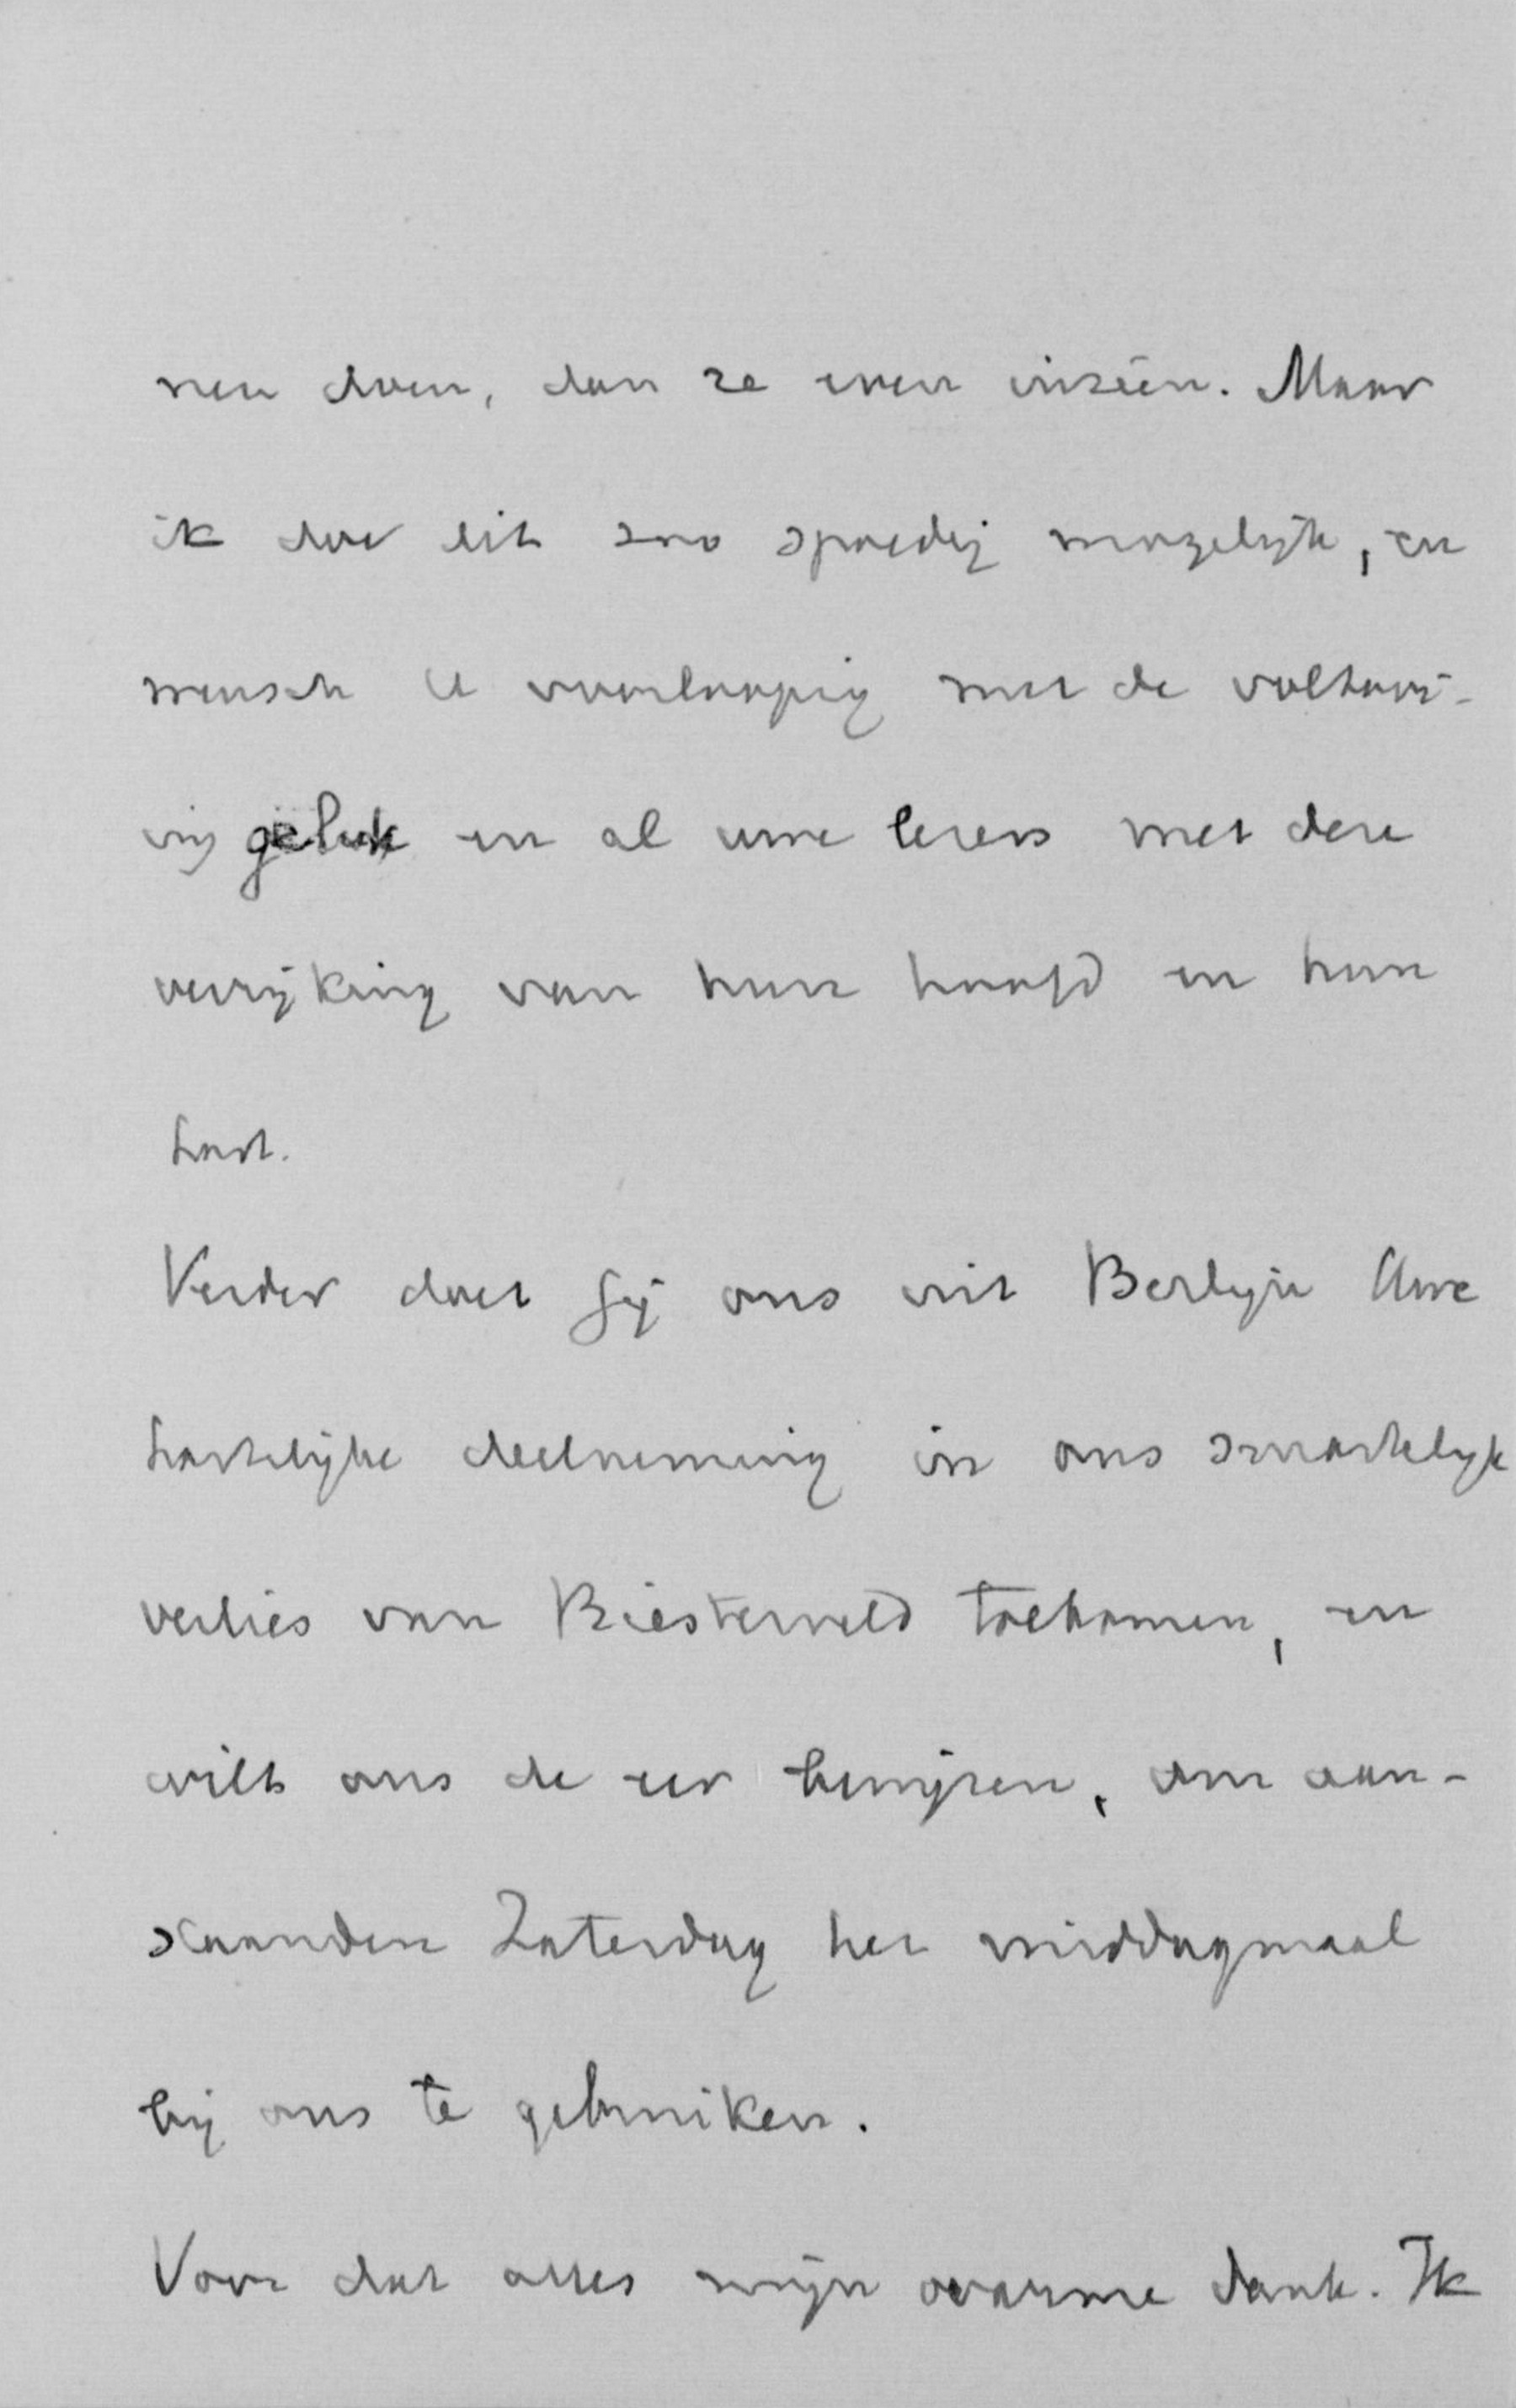 nen doen, dan ze even inzien. Maar
ik doe dit zoo spoedig mogelijk, en
wensch U voorloopig met de voltooi-
ing geluk en al uwe lezers met deze
verrijking van hun hoofd en hun
hart.
Verder doet Gij ons uit Berlijn Uwe
hartelijke deelneming in ons smartelijk
verlies van Biesterveld toekomen, en
wilt ons de eer bewijzen, om aan-
staanden Zaterdag het middagmaal
bij ons te gebruiken.
Voor dat alles mijn warme dank. Ik